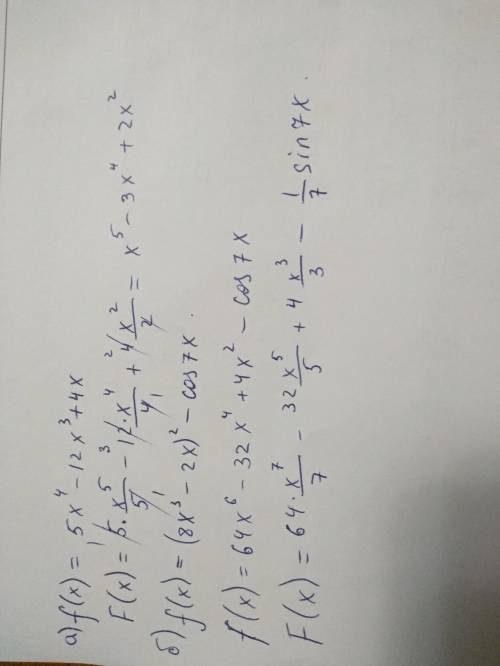 а) f(x) = 5x⁴ − 12x³ + 4x
F(x) = 5 · x⁵/5 − 12 · x⁴/4 + 4 x²/2 = x⁵ − 3x⁴ + 2x²
б) f(x) = (8x³ − 2x)² − cos7x.
f(x) = 64x⁶ − 32x⁴ + 4x² − cos7x
F(x) = 64 · x⁷/7 − 32 x⁵/5 + 4 x³/3 − 1/7 sin7x.